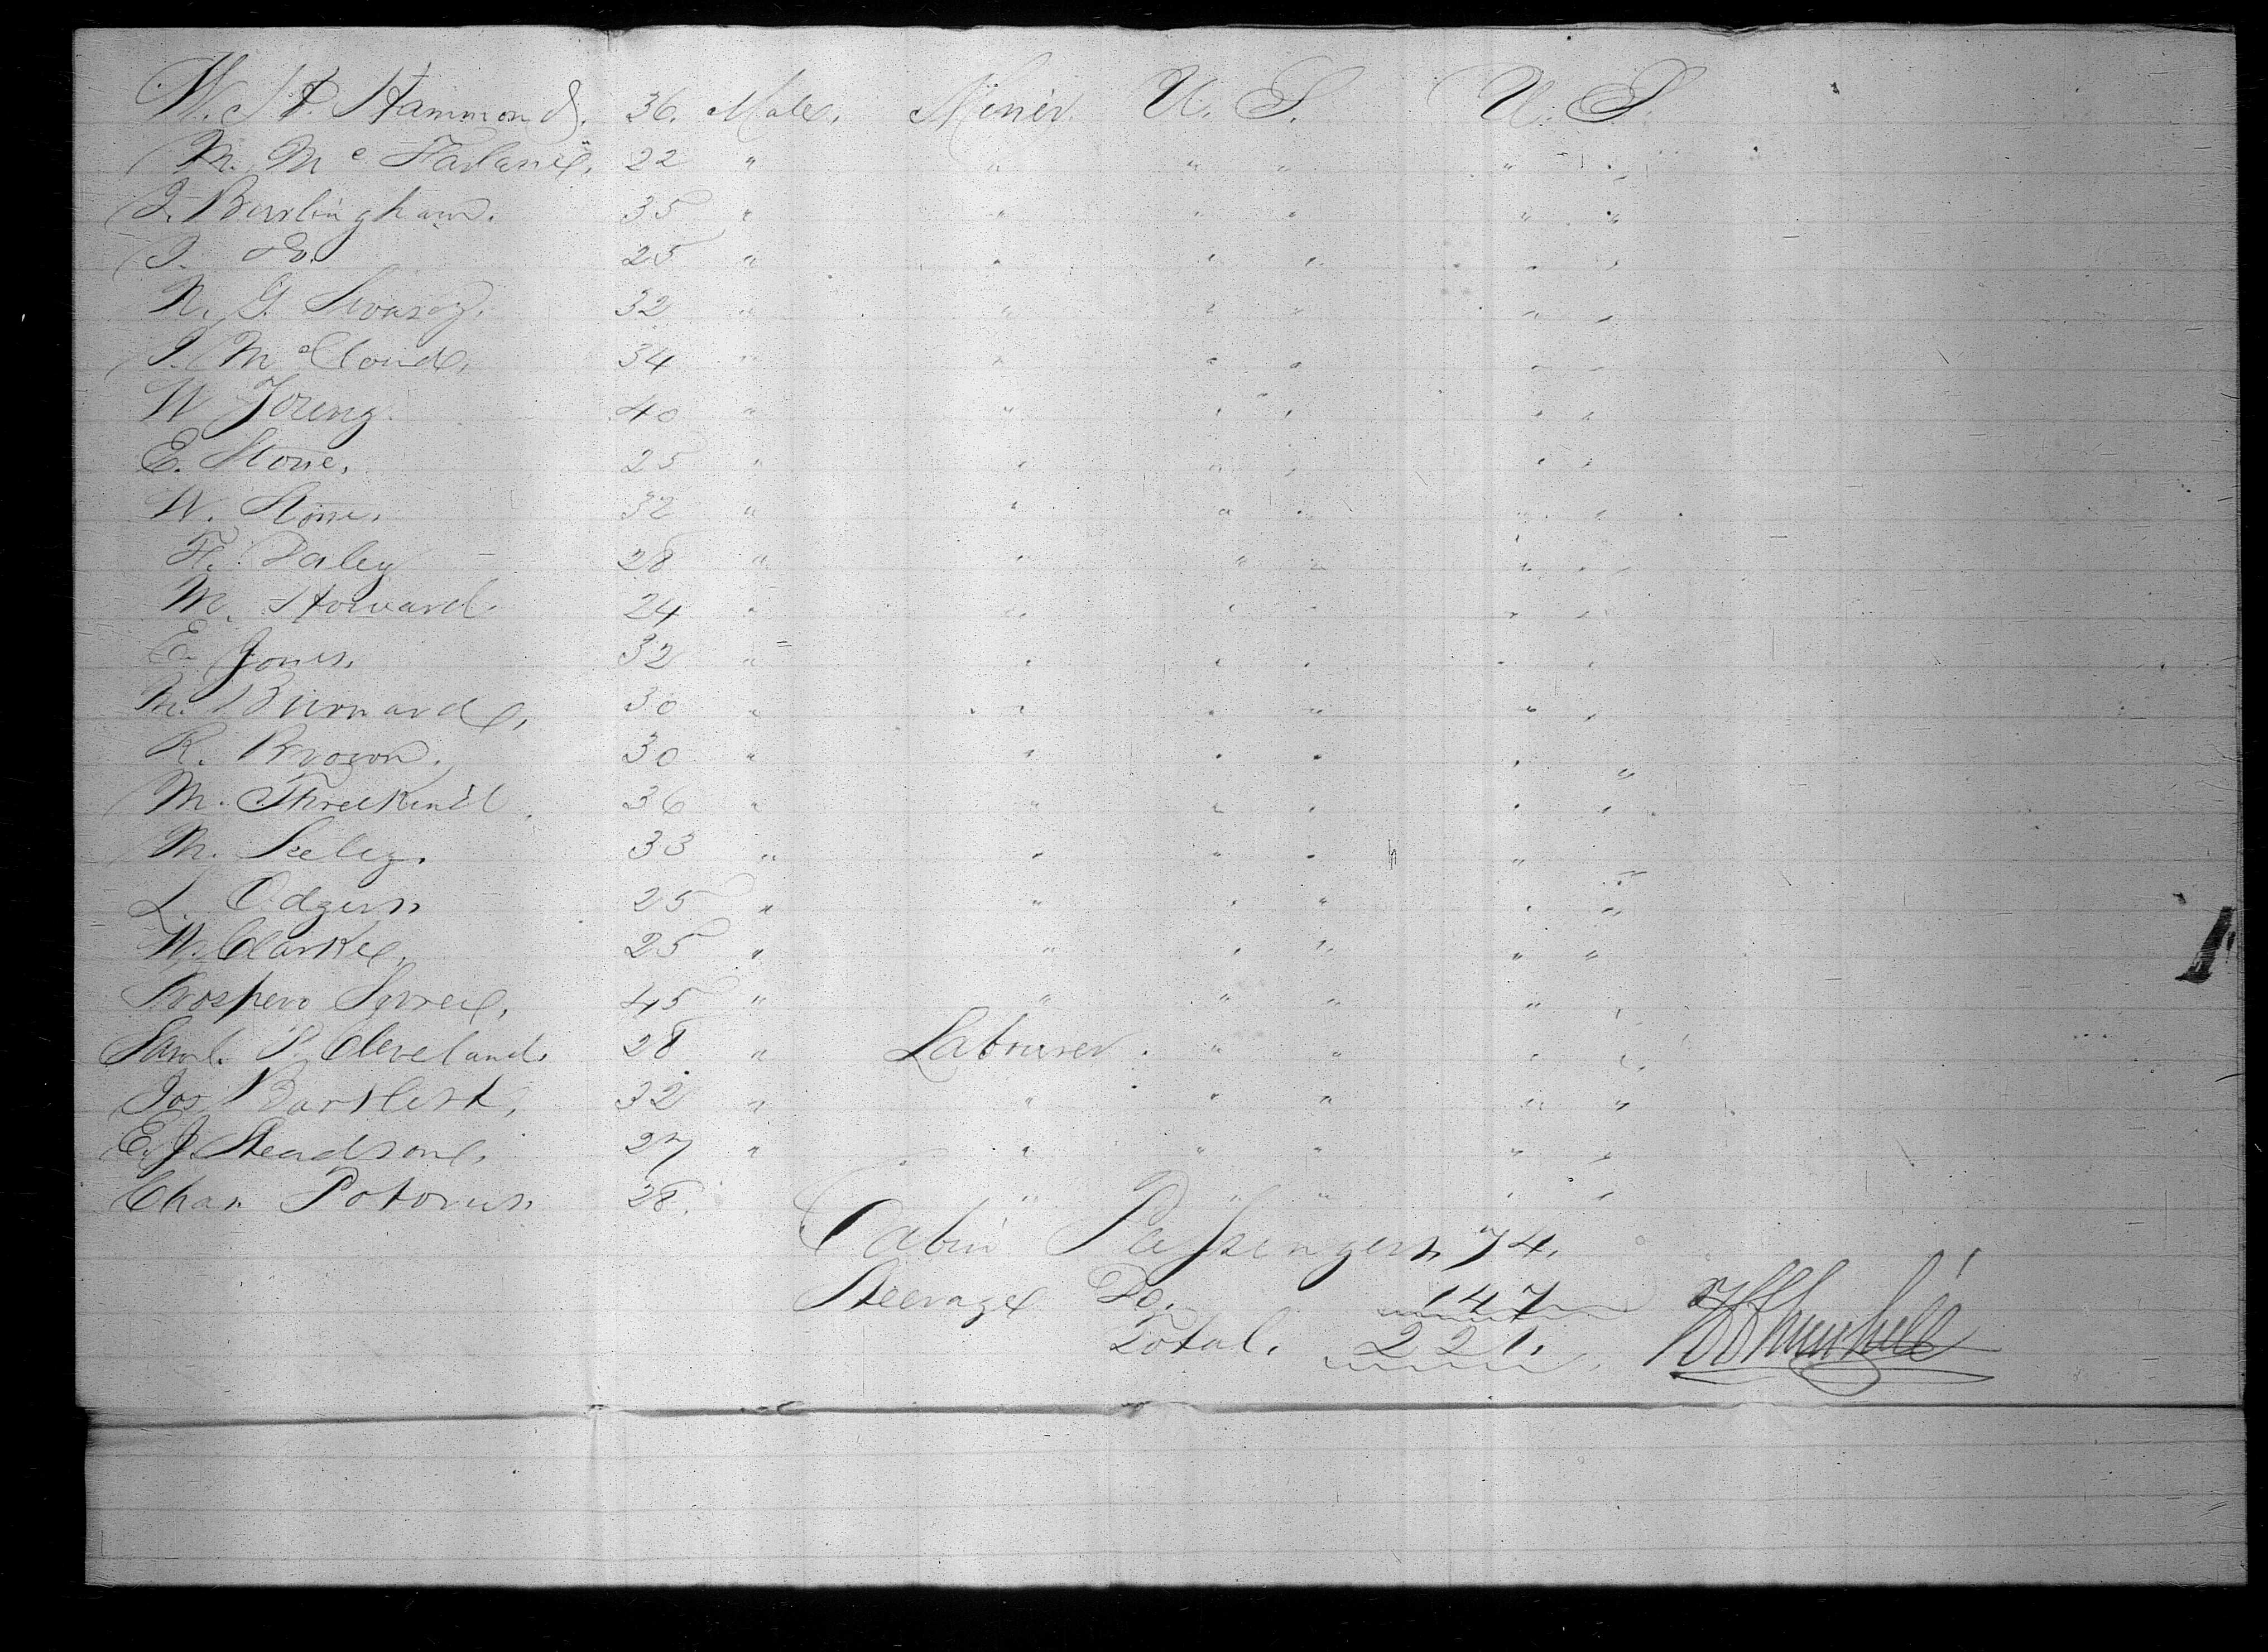 W. H. Hammond. 36. Male. Miner. U. S. U. S.
M. Mc Farlane, 22 " " " " " "
J. Burlingham. 35 " " " " " "
J. Do. 25 " " " " " "
N. G. Swasey. 32 " " " " " "
J. McCloud, 34 " " " " " "
W Young. 40 " " " " " "
E. Stone, 25 " " " " " "
W. Stone, 32 " " " " " "
H. Daley 28 " " " " " "
M. Howard 24 " " " " " "
E. Jones, 32 " " " " " "
M. Burnard, 30 " " " " " "
R. Brown, 30 " " " " " "
M. 36 " " " " " "
M. Seeley. 33 " " " " " "
L. Odgers 25 " " " " " "
W. Clarke, 25 " " " " " "
Prospero 45 " " " " " "
Saml. P. Cleveland. 28 " Labourer. " " " "
Jos Bartlett, 32 " " " " " "
E. J. Steadson, 27 " " " " " "
Chas. 28. " " " " "
Cabin Passengers 74.
Steerage Do. 147
Total. 221.